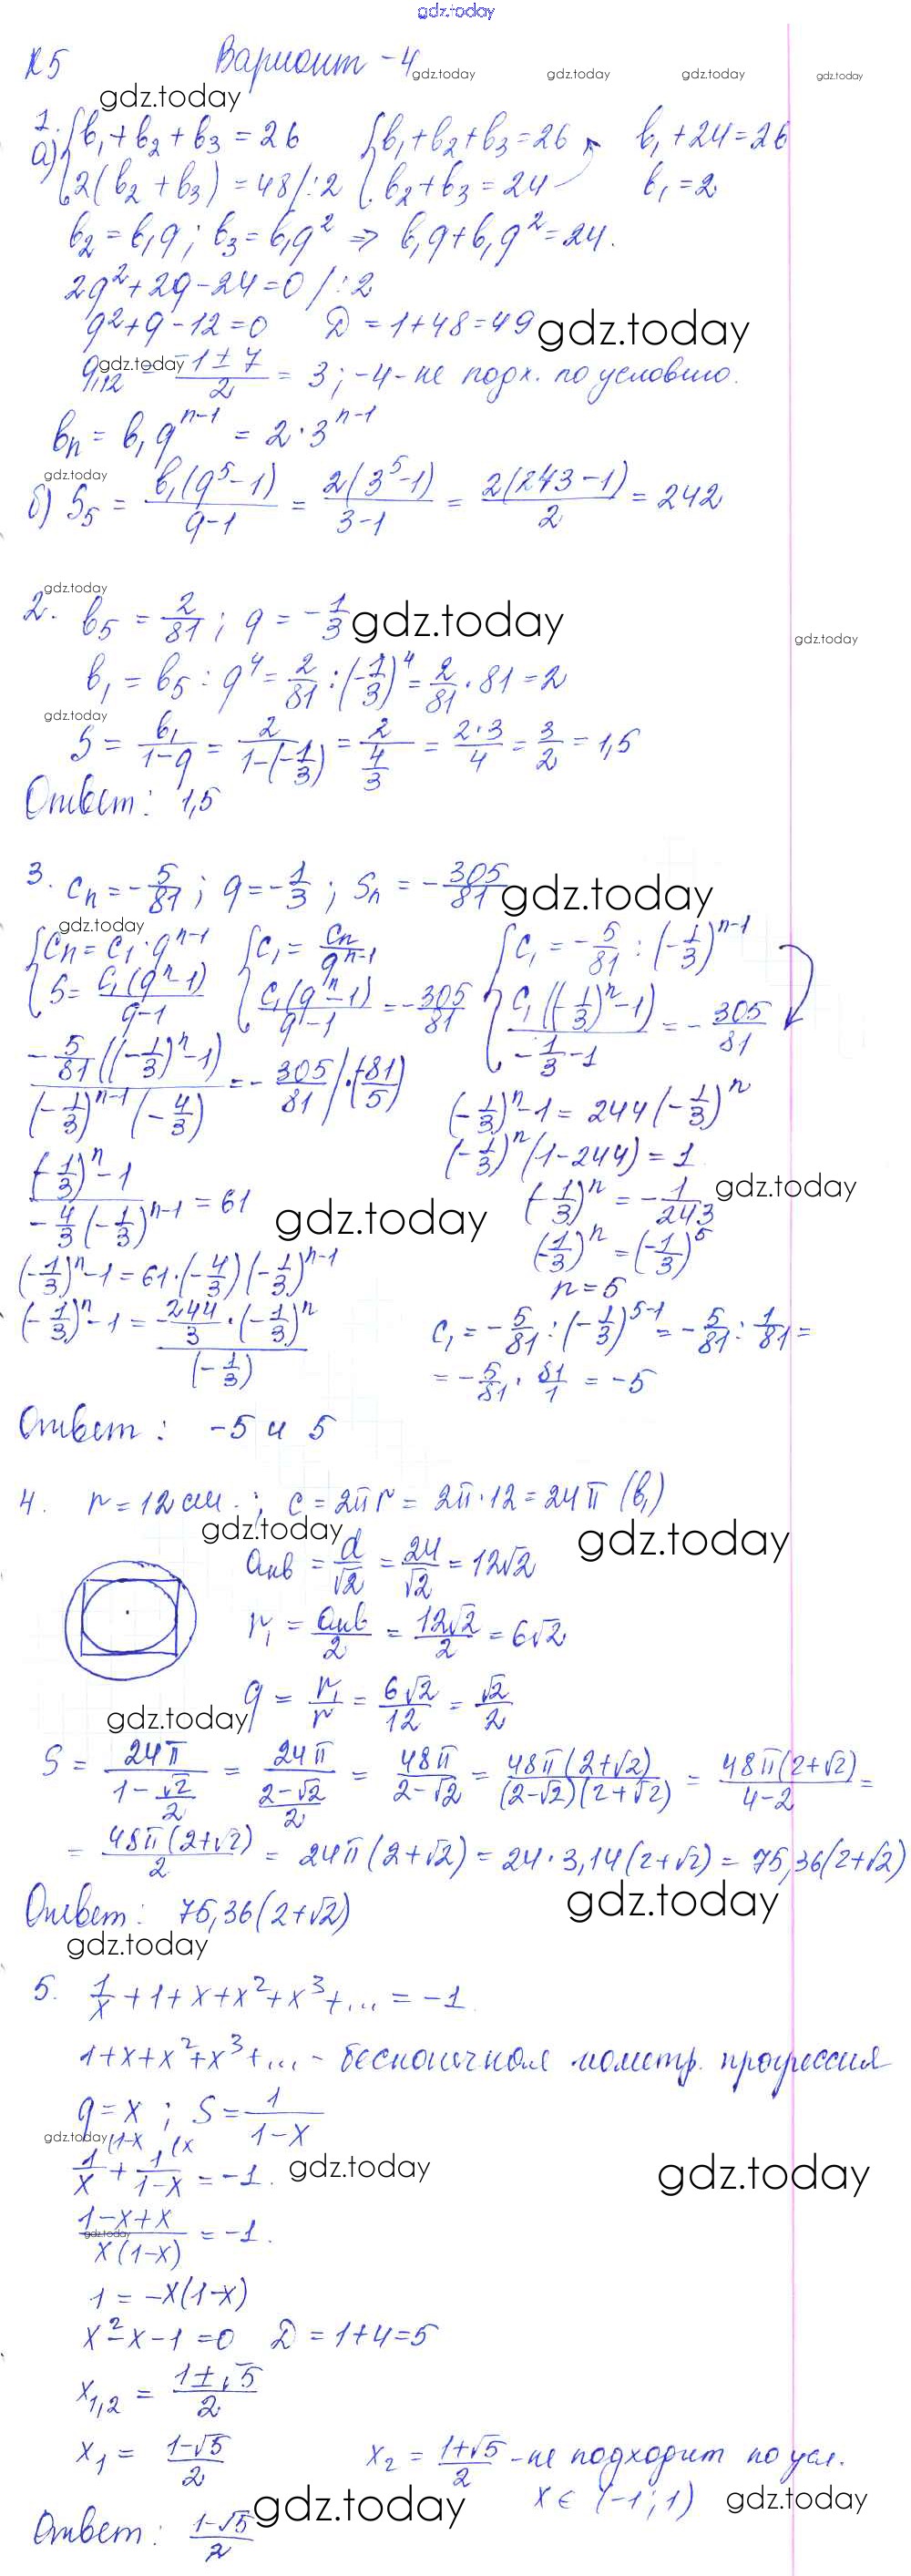 gdz.today
К5 Вариант - 4
gdz.today gdz.today gdz.today gdz.today
gdz.today
1. а) { b₁ + b₂ + b₃ = 26 { b₁ + b₂ + b₃ = 26 b₁ + 24 = 26
{ 2(b₂ + b₃) = 48 /:2 { b₂ + b₃ = 24 b₁ = 2
b₂ = b₁q ; b₃ = b₁q² ⇒ b₁q + b₁q² = 24.
2q² + 2q - 24 = 0 /:2
q² + q - 12 = 0 Д = 1 + 48 = 49 gdz.today
q₁,₂ = (-1 ± 7)/2 = 3 ; -4 - не подх. по условию.
gdz.today
bₙ = b₁q^(n-1) = 2·3^(n-1)
gdz.today
б) S₅ = b₁(q⁵ - 1)/(q - 1) = 2(3⁵ - 1)/(3 - 1) = 2(243 - 1)/2 = 242
gdz.today
2. b₅ = 2/81 ; q = -1/3 gdz.today
gdz.today
b₁ = b₅ : q⁴ = 2/81 : (-1/3)⁴ = 2/81 · 81 = 2
gdz.today
S = b₁/(1 - q) = 2/(1 - (-1/3)) = 2/(4/3) = 2·3/4 = 3/2 = 1,5
Ответ: 1,5
3. cₙ = -5/81 ; q = -1/3 ; Sₙ = -305/81 gdz.today
gdz.today
{ cₙ = c₁·q^(n-1) { c₁ = cₙ/q^(n-1) { c₁ = -5/81 : (-1/3)^(n-1)
{ S = c₁(qⁿ - 1)/(q - 1) { c₁(qⁿ - 1)/(q - 1) = -305/81 { c₁((-1/3)ⁿ - 1)/(-1/3 - 1) = -305/81
-5/81((-1/3)ⁿ - 1)/((-1/3)^(n-1)(-4/3)) = -305/81 /·(-81/5)
((-1/3)ⁿ - 1)/(-4/3(-1/3)^(n-1)) = 61 gdz.today
(-1/3)ⁿ - 1 = 61·(-4/3)(-1/3)^(n-1)
(-1/3)ⁿ - 1 = (-244/3·(-1/3)ⁿ)/(-1/3)
(-1/3)ⁿ - 1 = 244(-1/3)ⁿ
(-1/3)ⁿ(1 - 244) = 1
(-1/3)ⁿ = -1/243 gdz.today
(-1/3)ⁿ = (-1/3)⁵
n = 5
c₁ = -5/81 : (-1/3)^(5-1) = -5/81 : 1/81 =
= -5/81 · 81/1 = -5
Ответ: -5 и 5
4. r = 12 см. ; c = 2πr = 2π·12 = 24π (b₁)
gdz.today gdz.today
aкв = d/√2 = 24/√2 = 12√2
r₁ = aкв/2 = 12√2/2 = 6√2
q = r₁/r = 6√2/12 = √2/2
gdz.today
S = 24π/(1 - √2/2) = 24π/((2-√2)/2) = 48π/(2-√2) = 48π(2+√2)/((2-√2)(2+√2)) = 48π(2+√2)/(4-2) =
= 48π(2+√2)/2 = 24π(2+√2) = 24·3,14(2+√2) = 75,36(2+√2)
Ответ: 75,36(2+√2) gdz.today
gdz.today
5. 1/x + 1 + x + x² + x³ + ... = -1.
1 + x + x² + x³ + ... - бесконечная геометр. прогрессия
q = x ; S = 1/(1-x)
gdz.today
1/x (1-x + 1/(1-x) (x = -1. gdz.today gdz.today
(1-x+x)/(x(1-x)) = -1.
gdz.today
1 = -x(1-x)
x² - x - 1 = 0 Д = 1 + 4 = 5
x₁,₂ = (1 ± √5)/2
x₁ = (1-√5)/2 x₂ = (1+√5)/2 - не подходит по усл.
x ∈ (-1 ; 1) gdz.today
gdz.today
Ответ: (1-√5)/2